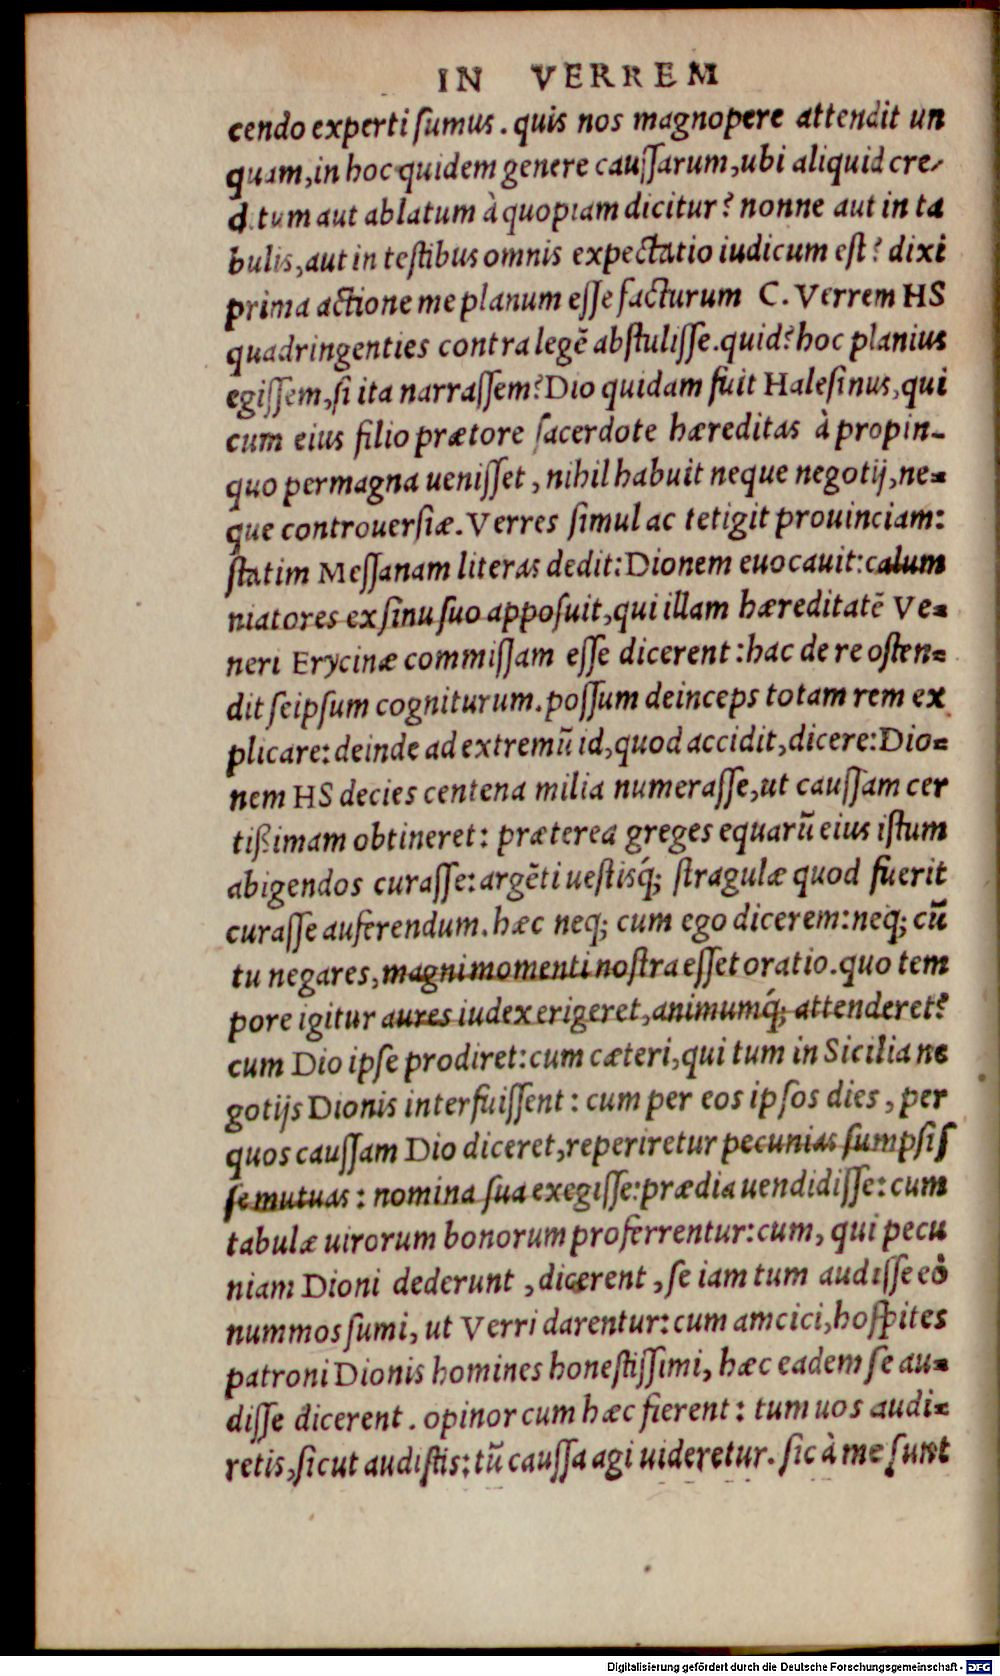 IN VERREM
cendo experti ſumus. quis nos magnopere attendit un
quam,in hoc quidem genere cauſſarum,ubi aliquid cre/
ditum aut ablatum à quopiam dicitur? nonne aut in ta
bulis,aut in teſtibus omnis expectatio iudicum eſt? dixi
prima actione me planum eſſe facturum C. Verrem HS
quadringenties contra legē abſtuliſſe.quid?hoc planius
egiſſem,ſi ita narraſſem?Dio quidam fuit Haleſinus,qui
cum eius filio prætore ſacerdote hæreditas à propin-
quo permagna ueniſſet, nihil habuit neque negotij,ne-
que controuerſiæ. Verres ſimul ac tetigit prouinciam:
ſtatim Meſſanam literas dedit:Dionem euocauit:calum
niatores ex ſinu ſuo appoſuit,qui illam hæreditatē Ve-
neri Erycinæ commiſſam eſſe dicerent:hac de re oſten-
dit ſeipſum cogniturum.poſſum deinceps totam rem ex
plicare:deinde ad extremū id,quod accidit,dicere:Dio-
nem HS decies centena milia numeraſſe,ut cauſſam cer
tißimam obtineret: præterea greges equarū eius iſtum
abigendos curaſſe:argēti ueſtisq́; ſtragulæ quod fuerit
curaſſe auferendum.hæc neq; cum ego dicerem:neq; cū
tu negares,magni momenti noſtra eſſet oratio.quo tem
pore igitur aures iudex erigeret,animumq́; attenderet?
cum Dio ipſe prodiret:cum cæteri,qui tum in Sicilia ne
gotijs Dionis interfuiſſent: cum per eos ipſos dies, per
quos cauſſam Dio diceret,reperiretur pecunias ſumpſiſ
ſe mutuas: nomina ſua exegiſſe:prædia uendidiſſe:cum
tabulæ uirorum bonorum proferrentur:cum, qui pecu
niam Dioni dederunt, dicerent, ſe iam tum audiſſe eò
nummos ſumi, ut Verri darentur:cum amcici,hoſpites
patroni Dionis homines honeſtiſſimi, hæc eadem ſe au-
diſſe dicerent. opinor cum hæc fierent: tum uos audi-
retis,ſicut audiſtis:tū cauſſa agi uideretur. ſic à me ſunt
Digitalisierung gefördert durch die Deutsche Forschungsgemeinschaft - DFG